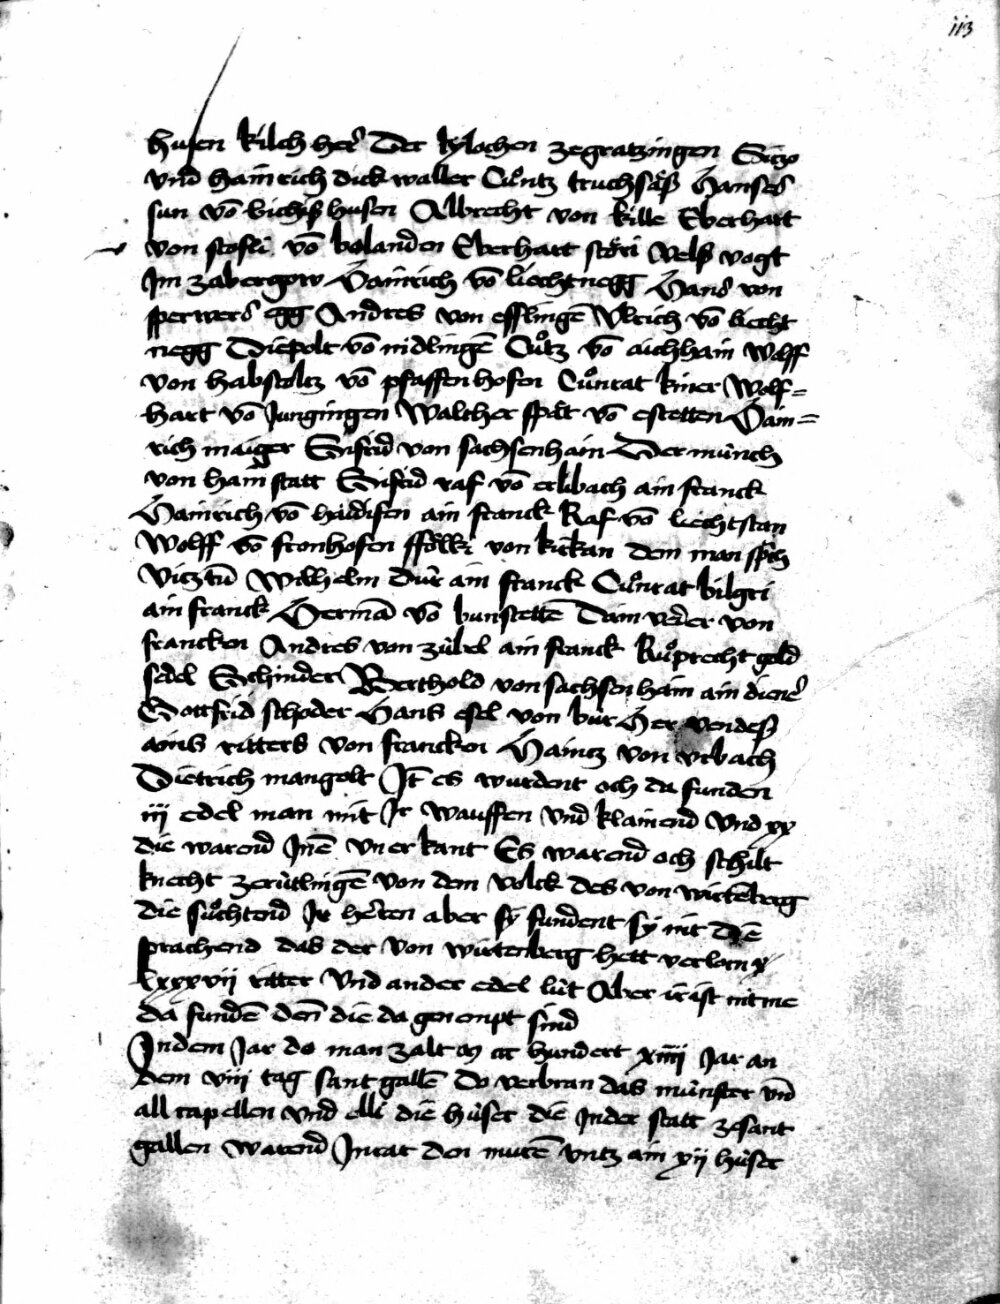 113
husen kilch her̄ Der kylochen zegratzingen Sitzo
vnd hainrich dick waller Cůntz truchsäß Hanses
sun vō bichißhusen Albrecht von kille Eberhart
von stofel vō bolanden Eberhart störi velß vogt
Jm zabergow Hainrich vō liechtnegg Hans von
sperwers egg Andres von efflingē Ulrich vō liecht
negg Diepolt vō nidlingē Cůtz vō aichhain Wolff
von habstoltz vō pfaffenhofen Cůnrat kiner Wolf=
hart vō Jungingen Walther spät vō estetten Hain=
rich maiger Sifrid von sachsenhain Der münch
von hain statt Sifrid raf vō erlibach ain franck
Hainrich vō haidisen ain franck Raf vō liechtstan
Wolff vō stonhofen ffölki von kirkan dem man sprich
vitztū Wilhelm dür ain franck Cůnrat bilgri
ain franck Hermā vō bunstettē Drin vῆer von
francken Andres von zübel ain franck Růprecht gold
sedel Schinder Berthold von sachsenhain ain diener̄
Gottfrid schoder Hans esel von bur Her vendeß
ains ritters von francken Haintz von vrbach
Dietrich mangolt Jt̄ es wurdent och da funden
iij edel man mit Jr wauffen vnd klainend vnd xx
die warend Jnē vnerkant Es warend och schilt
knecht zerütlingē von dem volck des von wirtēberg
die sůchtend Jr herren aber sy fundent sy nit Diē
sprachend das der von wirtenberg hett verlorn x
lxxxvii ritter vnd ander edel lüt Aber ir ist nit me
da fundē den̄ die da genempt sind
Jn dem Jar do man zalt m cc hundert xiiii Jar an
dem viii tag sant gallē Do verbran das münster vn̄
all capellen vnd elli die hüser die Jn der statt zesant
gallen warend Jn rat den murē vntz ain xij hüser